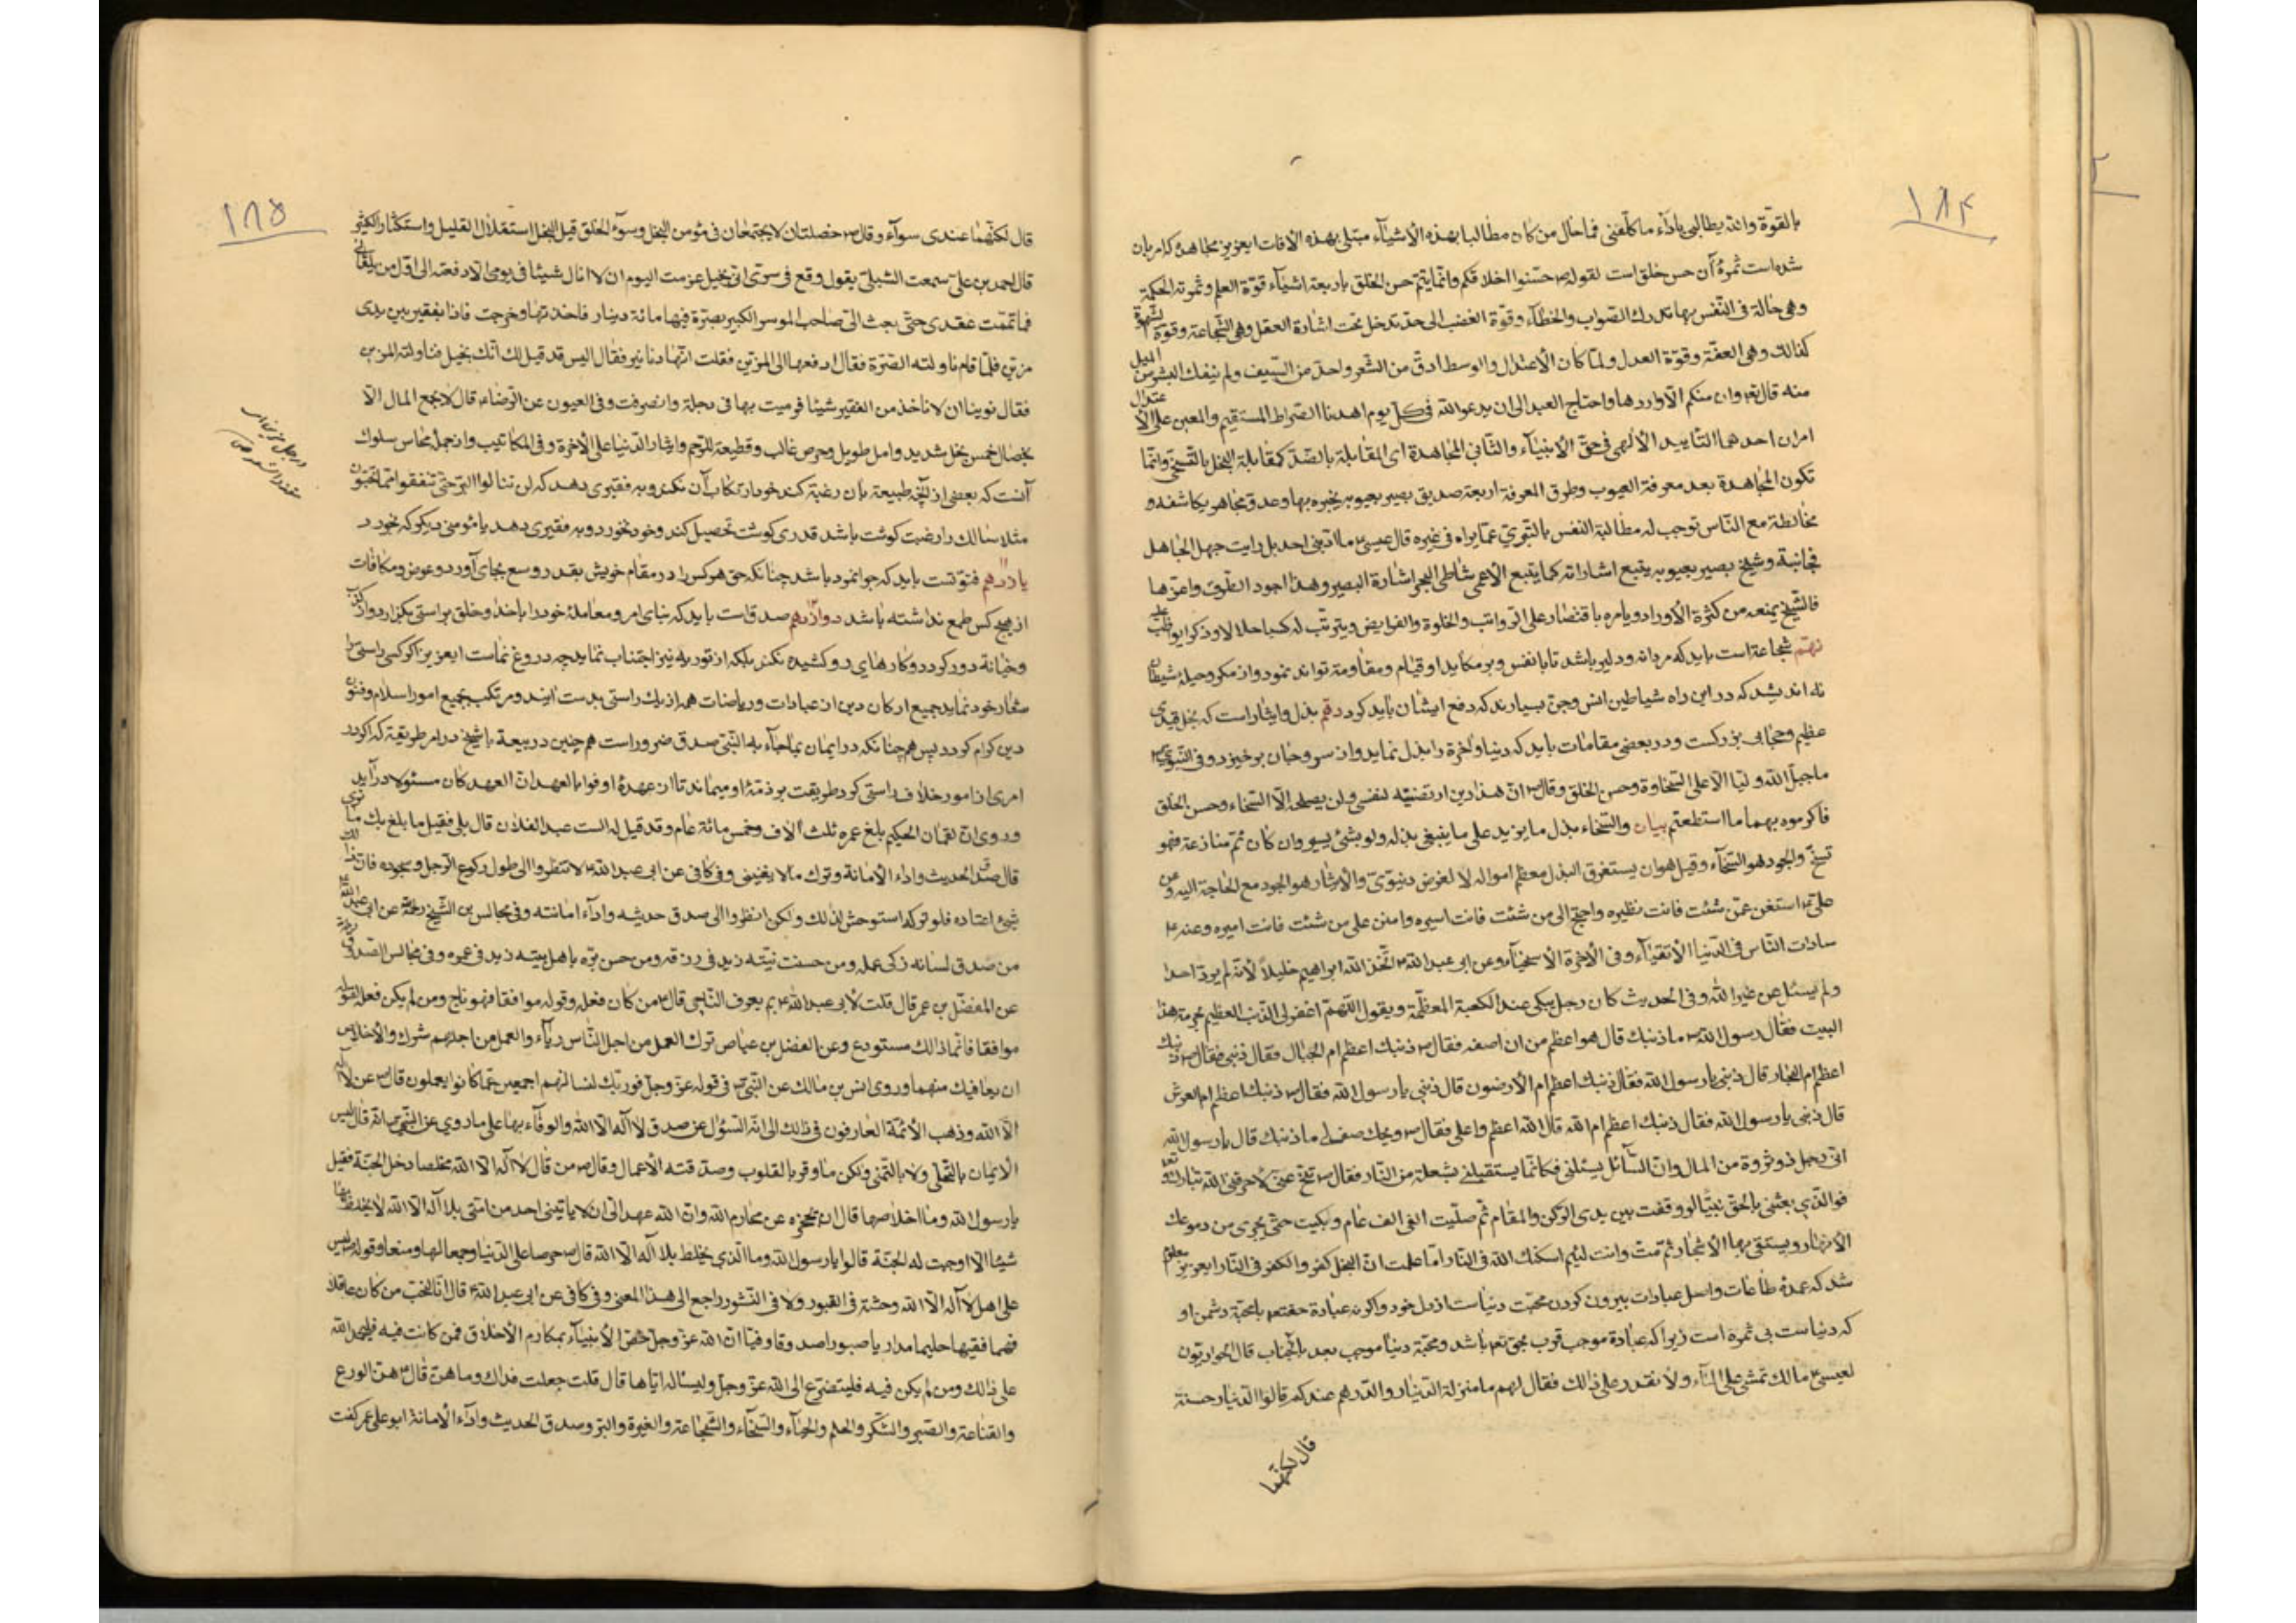 ١٨٤
بالقوّة والله يطالبى باداء ما كلّفنى فما حال من كان مطالبا بهذه الأشيآء مبتلى بهذه الآفات ايعزيز مجاهده كه امر بان
شده است ثمرهٔ آن حسن خلق است لقوله ص حسّنوا اخلاقكم وانّما يتمّ حسن الخلق باربعة اشيآء قوّة العلم وثمرته الحكمة
وهى حالة فى النّفس بها تدرك الصّواب والخطآء وقوّة الغضب الى حدّ تدخل تحت اشارة العقل وهى الشّجاعة وقوّة الشهوة
كذالك وهى العفّة وقوّة العدل ولمّا كان الأعتدال والوسط ادقّ من الشّعر واحدّ من السّيف ولم ينفك البشر من الميل
منه قال تع وان منكم الّا واردها واحتاج العبد الى ان يدعو الله فى كلّ يوم اهدنا الصّراط المستقيم والمعين على الأعتدال
امران احدهما التأييد الألهى فى حقّ الأنبيآء والثّانى المجاهدة اى المقابلة بالضدّ كمقابلة البخل بالتّسخّى وانّما
تكون المجاهدة بعد معرفة العيوب وطرق المعرفة اربعة صديق بصير بعيوبه يخبره بها وعدوّ مجاهر يكاشفه و
مخالطة مع النّاس توجب له مطالبة النفس بالتّبرّى عمّا يراه فى غيره قال عيسى ع ما ادّبنى احد بل رايت جهل الجاهل
فجانبته وشيخ بصير بعيوبه يتبع اشاراته كما يتبع الأعمى شاطى البحر اشارة البصير وهذا اجود الطّرق واعزّها
فالشّيخ يمنعه من كثرة الأوراد ويامره باقتصار على الرّواتب والخلوة والفرايض ويترتّب له
نهم شجاعة است بايد كه مردانه ودلير باشد تا با نفس وبر مكايد او قيام ومقاومة تواند نمود واز مكر وحيلهٔ شيطان
نه انديشد كه در اين راه شياطين انس وجنّ بسيارند كه دفع ايشان بايد كرد دهم بذل وايثار است كه بخل قيدى
عظيم وحجابى بزركست ودر بعضى مقامات بايد كه دنيا وآخرة را بذل نمايد واز سر وجان برخيزد وفى النّبوىّ ص
ما جبل الله وليّا الّا على السّخاوة وحسن الخلق وقال ص انّ هذا دين ارتضيته لنفسى ولن يصلحه الّا السّخاء وحسن الخلق
فاكرموه بهما ما استطعتم بيان والسّخاء بذل ما يزيد على ما ينبغى بذله ولو بشئ يسير وان كان ثم منازعة فهو
تسخّ والجود هو السّخآء وقيل هو ان يستغرق البذل معظم امواله لا لغرض دنيوىّ والأيثار هو الجود مع الحاجة اليه وعن
علىّ ع استغن عمّن شئت فانت نظيره واحتج الى من شئت فانت اسيره وامنن على من شئت فانت اميره وعنه ع
سادات النّاس فى الدّنيا الأتقيآء وفى الأخرة الأسخيآء وعن ابى عبد الله ع اتّخذ الله ابراهيم خليلاً لأنّه لم يردّ احدا
ولم يسئل عن غير الله وفى الحديث كان رجل يبكى عند الكعبة المعظّمة ويقول اللّهمّ اغفر لى الذّنب العظيم بحرمة هذا
البيت فقال رسول الله ص ما ذنبك قال هو اعظم من ان اصفه فقال ص ذنبك اعظم ام الجبال فقال ذنبى فقال ص ذنبك
اعظم ام البحار قال ذنبى يا رسول الله فقال ذنبك اعظم ام الأرضون قال ذنبى يا رسول الله فقال ص ذنبك اعظم ام العرش
قال ذنبى يا رسول الله فقال ذنبك اعظم ام الله قال الله اعظم واعلى فقال ص ويحك صف لى ما ذنبك قال يا رسول الله
انّى رجل ذو ثروة من المال وانّ السّآئل يسئلنى فكانّما يستقبلنى بشعلة من النّار فقال ص تنحّ عنّى لا تحرقنى الله تبارك وتع
فوالّذى بعثنى بالحقّ نبيّا لو وقفت بين يدى الركن والمقام ثم صلّيت الفى الف عام وبكيت حتّى يجرى من دموعك
الأنهار ويستقى بها الأشجار ثمّ متّ وانت لئيم اسكنك الله فى النّار اما علمت انّ البخل كفر والكفر فى النّار ايعزيز معلوم
شد كه عمدهٔ طاعات واصل عبادات بيرون كردن محبّت دنياست از دل خود واكر نه عبادة حقتع با محبّة دشمن او
كه دنياست بى ثمره است زيرا كه عبادة موجب قرب بحق تع باشد ومحبّة دنيا موجب بعد باتّحاب قال الحواريّون
لعيسى ع مالك تمشى على المآء ولا نقدر على ذالك فقال لهم ما منزلة الدّينار والدّرهم عندكم قالوا الدّينار حسنة
قال لكنّهما
١٨٥
قال لكنّهما عندى سوآء وقال ص خصلتان لا يجتمعان فى مؤمن البخل وسوء الخلق قيل البخل استقلال القليل واستكثار الكثير
قال احمد بن علىّ سمعت الشبلىّ يقول وقع فى سرّى انّى بخيل عزمت اليوم ان لا انال شيئا فى يومى الّا دفعته الى اوّل من يلقانى
فما تمّمت عقدى حتّى بعث الىّ صاحب الموسر الكبير بصرّة فيها مائة دينار فاخذتها وخرجت فاذا بفقير بين يدى
مزيّن فلمّا قام ناولته الصّرّة فقال ادفعها الى المزيّن فقلت انّها دنانير فقال اليس قد قيل لك انّك بخيل فناولته المزيّن
فقال نوينا ان لا ناخذ من الفقير شيئا فرميت بها فى دجلة وانصرفت وفى العيون عن الرّضا ع قال لا يجمع المال الّا
بخصال خمس بخل شديد وامل طويل وحرص غالب وقطيعة للرّحم وايثار الدّنيا على الأخرة وفى المكاتيب واز جملهٔ محاسن سلوك
آنست كه بعضى از آنچه طبيعة بآن رغبة كند خود ارتكاب آن نكند وبه فقيرى دهد كه لن تنالوا البرّ حتّى تنفقوا ممّا تحبّون
مثلا سالك را رغبت كوشت باشد قدرى كوشت تحصيل كند وخود نخورد وبه فقيرى دهد يا مؤمنى ديكر كه بخورد
يازدهم فتوّتست بايد كه جوانمرد باشد چنانكه حق هركس را در مقام خويش بقدر وسع بجاى آورد وعوض ومكافات
از هيچ كس طمع نداشته باشد دوازدهم صدق است بايد كه بناى امر ومعاملهٔ خود را با خدا وخلق براستى بكزارد واز كذب
وخيانة دور كردد وكارهاى دو كشيده نكند بلكه از توريه نيز اجتناب نمايد چه دروغ نماست ايعزيز اكر كسى راستى را
شعار خود نمايد جميع اركان دين از عبادات ورياضات همه از يك راستى بدست آيند ومرتكب جميع امور اسلام وفنون
دين كرام كردد پس همچنانكه در ايمان بما جاء به النّبىّ صدق ضرور است هم چنين در بيعة با شيخ در امر طريقة كه اكر در
امرى از امور خلاف راستى كرد طريقت بر ذمّهٔ او ميماند تا از عهدهٔ اوفوا بالعهد انّ العهد كان مسئولا درآيد
وروى انّ لقمان الحكيم بلغ عمره ثلث آلاف وخمس مائة عام وقد قيل له الست عبد الفلان قال بلى فقيل ما بلغ بك ما نرى
قال صدق الحديث واداء الأمانة وترك ما لا يغنينى وفى كافى عن ابى عبد الله ع لا تنظروا الى طول ركوع الرّجل وسجوده فانّ ذالك
شئ اعتاده فلو تركه استوحش لذالك ولكن انظروا الى صدق حديثه واداء امانته وفى مجالس بن الشّيخ ره عن ابى عبد الله ع
من صدق لسانه زكى عمله ومن حسنت نيّته زيد فى رزقه ومن حسن برّه باهل بيته زيد فى عمره وفى مجالس الصّدوق
عن المفضّل بن عمر قال قلت لأبى عبد الله ع بم يعرف النّاجى قال ع من كان فعله وقوله موافقا فهو ناج ومن لم يكن فعله لقوله
موافقا فانّما ذالك مستودع وعن الفضل بن عياض ترك العمل من اجل النّاس ريآء والعمل من اجلهم شرك والأخلاص
ان يعافيك منهما وروى انس بن مالك عن النّبىّ ص فى قوله عزّ وجلّ فوربّك لنسألنهم اجمعين عمّا كانوا يعملون قال ص عن لا آله
الّا الله وذهب الأئمّة العارفون فى ذالك الى انّه السّؤال عن صدق لا آله الّا الله والوفآء بها على ما روى عن النّبىّ ص انّه قال ليس
الأيمان بالتّحلّى ولا بالتمنّى ولكن ما وقر بالقلوب وصدّقته الأعمال وقال ص من قال لا آله الّا الله مخلصا دخل الجنّة فقيل
يا رسول الله وما اخلاصها قال ان يحجزه عن محارم الله وانّ الله عهد الىّ ان لا ياتينى احد من امّتى بلا آله الّا الله لا يخلط بها
شيئا الّا اوجبت له الجنّة قالوا يا رسول الله وما الّذى يخلط بلا آله الّا الله قال ص حرصا على الدّنيا وجمعا لها ومنعا وقوله ص ليس
على اهل لا آله الّا الله وحشة فى القبور ولا فى النّشور راجع الى هذا المعنى وفى كافى عن ابى عبد الله ع قال انّا لنحبّ من كان عاقلا
فهما فقيها حليما مداريا صبورا صدوقا وفيّا انّ الله عزّ وجلّ خصّ الأنبيآء بمكارم الأخلاق فمن كانت فيه فليحمد الله
على ذالك ومن لم يكن فيه فليتضرّع الى الله عزّ وجلّ وليسئاله ايّاها قال قلت جعلت فداك وما هنّ قال ع هنّ الورع
والقناعة والصّبر والشّكر والحلم والحيآء والسّخآء والشّجاعة والغيرة والبرّ وصدق الحديث واداء الأمانة ابو على عمر كفت